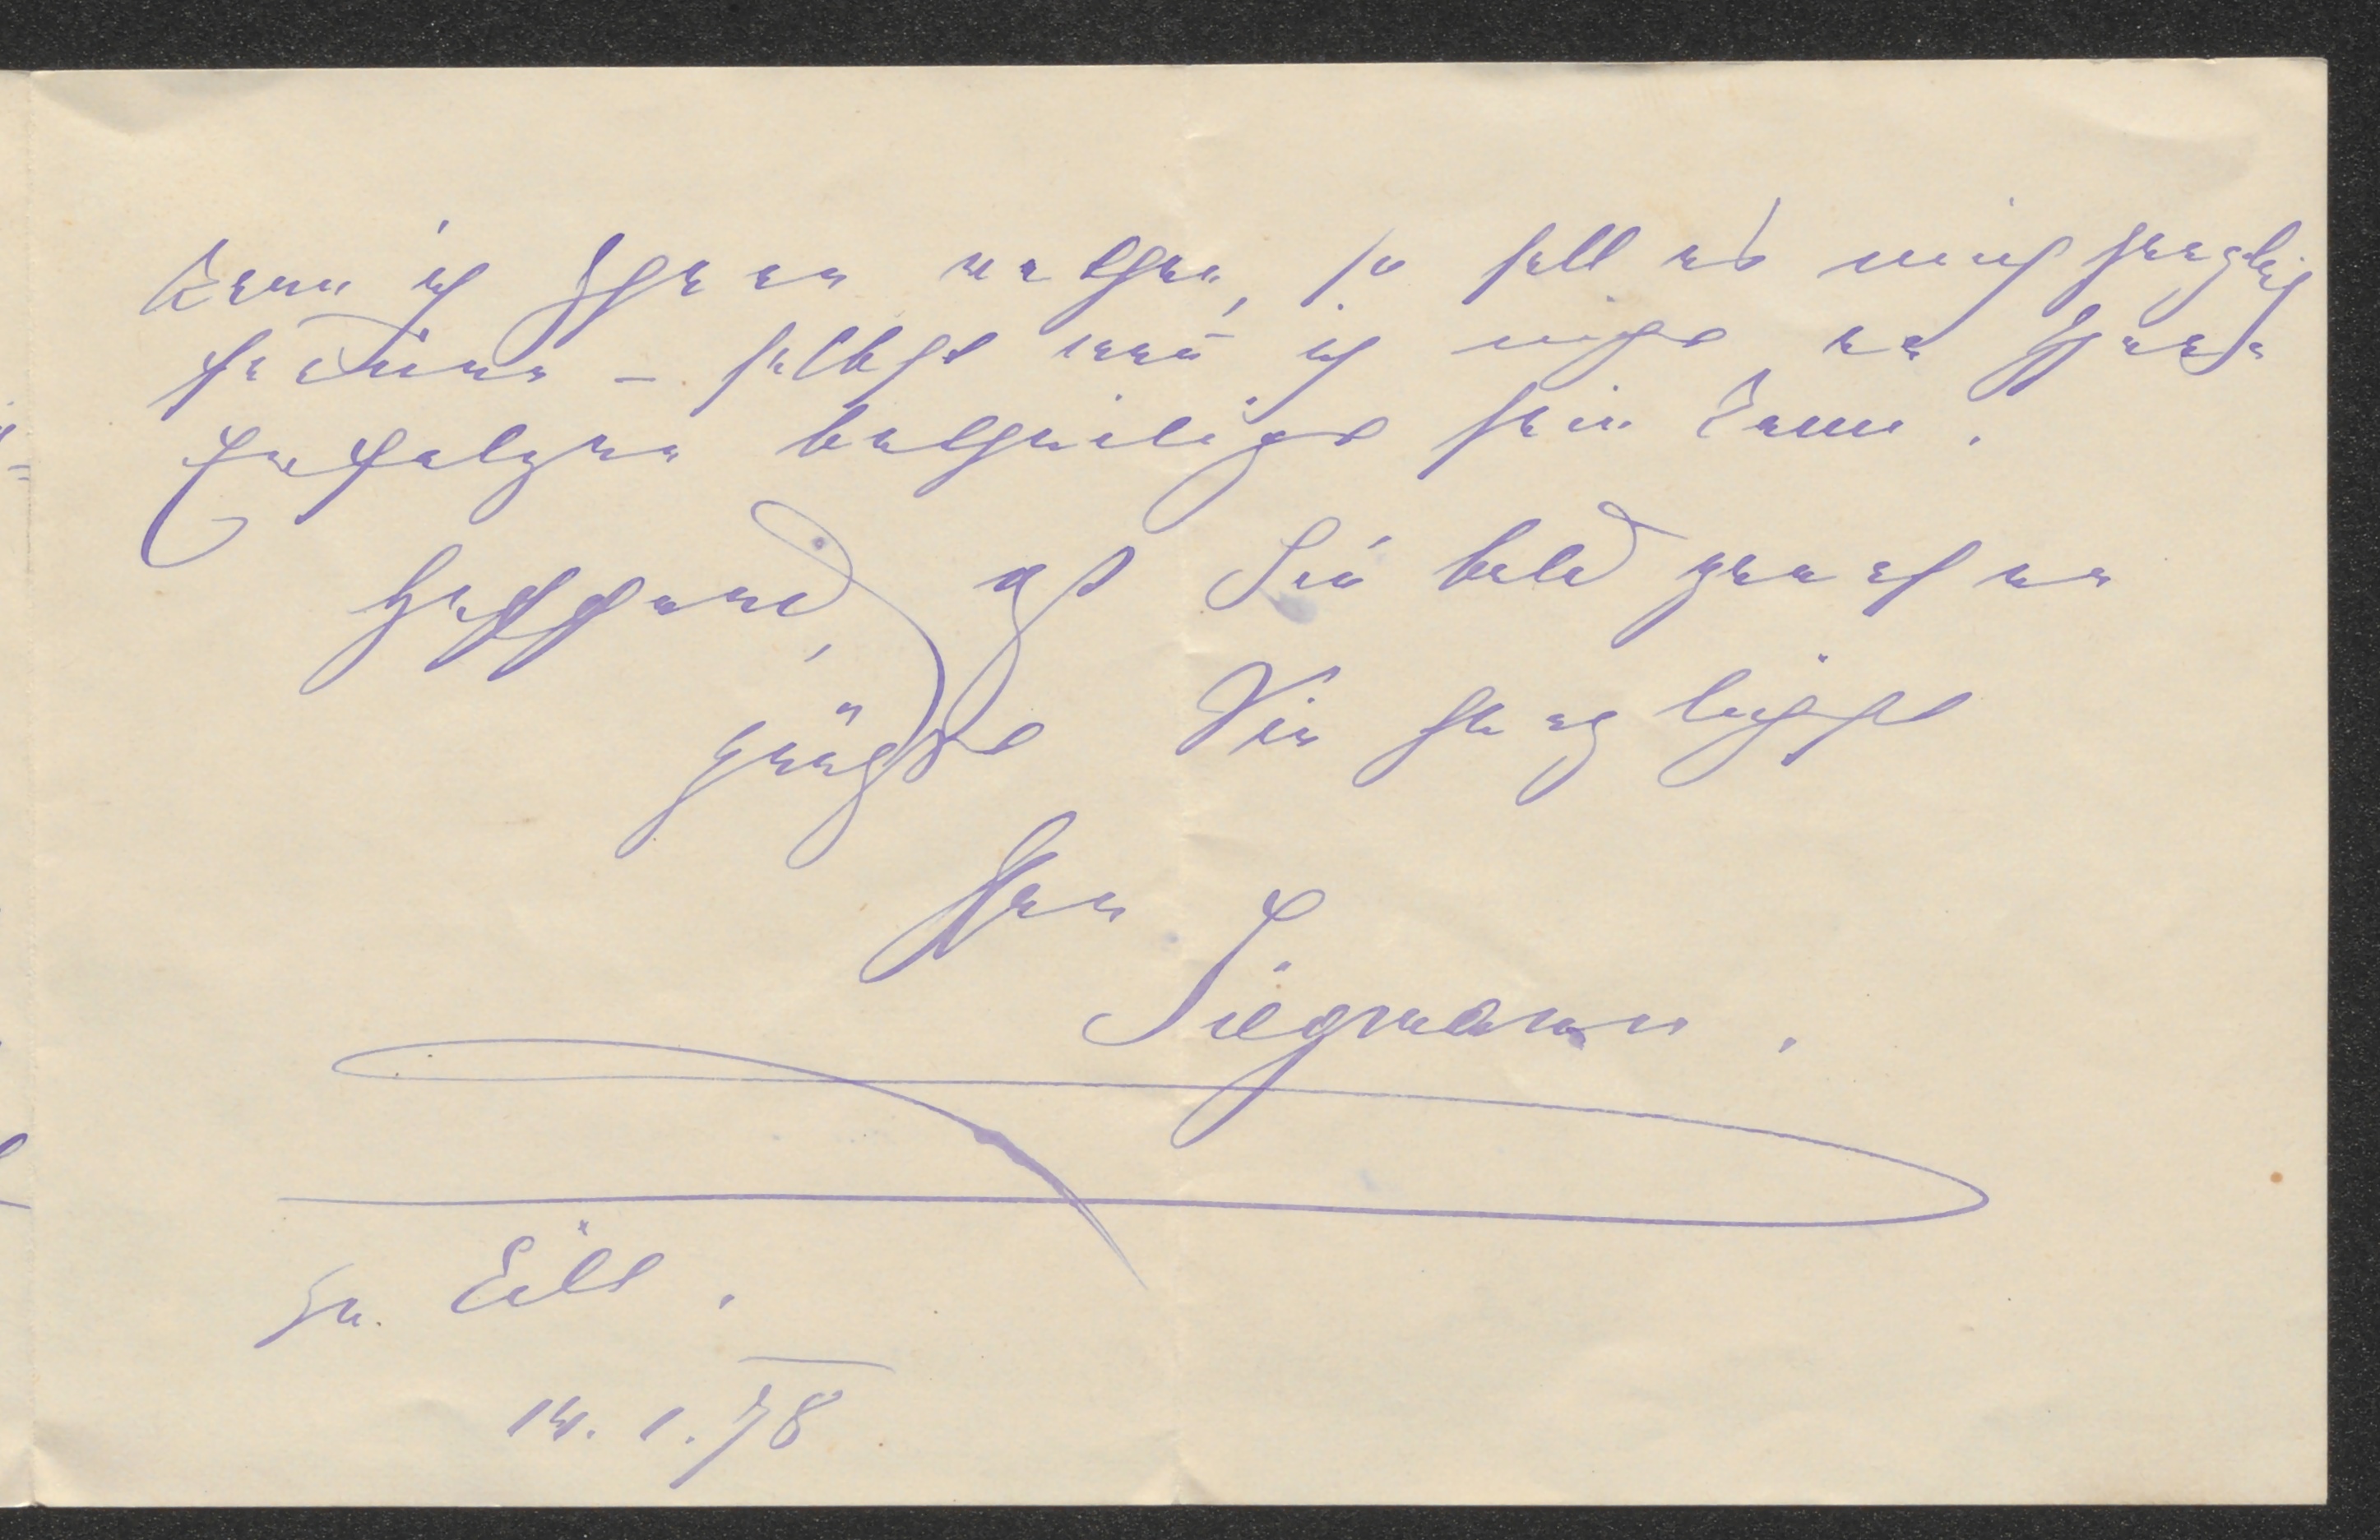 Kann ich Ihnen rathen, so soll es mich herzlich
freuen – selbst wenn ich nicht an Ihren
Erfolgen betheiligt sein kann.
Hoffend, Sie bald genesen
grüßt Sie herzlichst
Ihr
Siegmann.
In Eile.
14. 1. 78